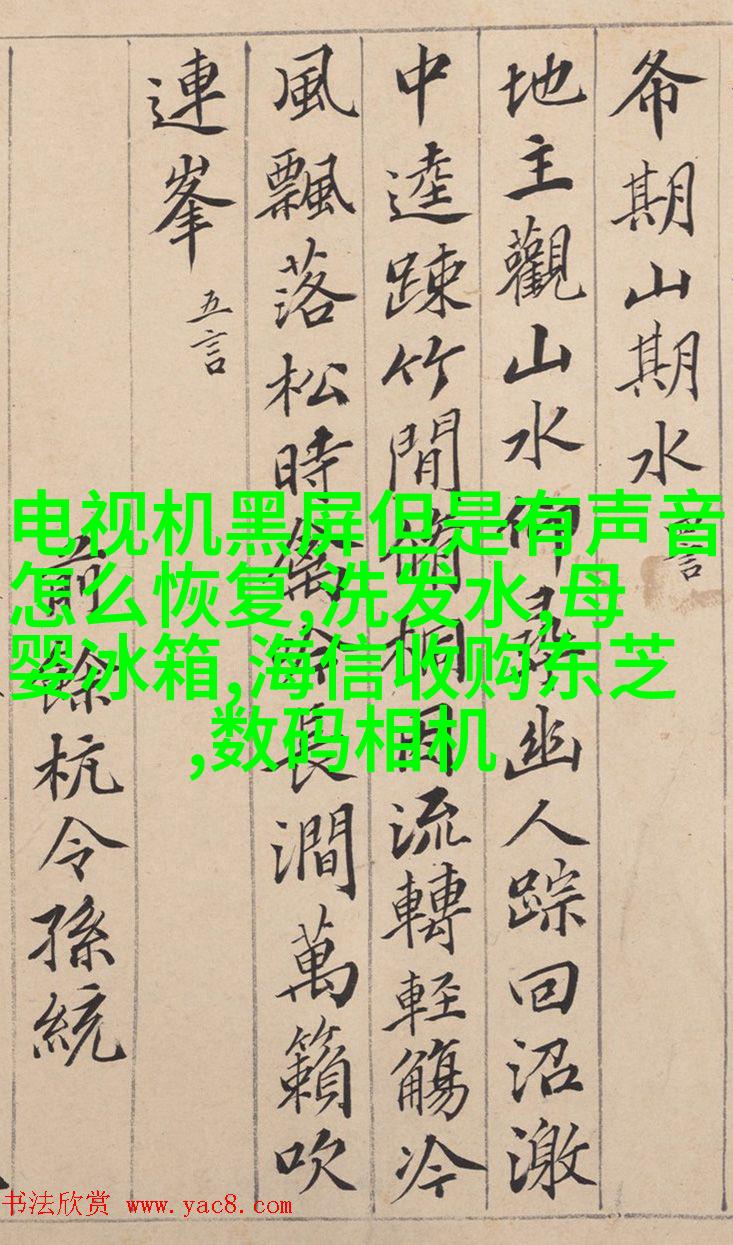 希期山期水 言
地主觀山水仰尋幽人踪回沼激
中逵踈竹間脩桐因流轉輕觴冷
風飄落松時禽吟長澗萬籟吹
連峯 五言
前餘杭令孫統
电视机黑屏但是有声音
怎么恢复,洗发水,母
婴冰箱,海信收购东芝
,数码相机
书法欣赏 www.yac8.com